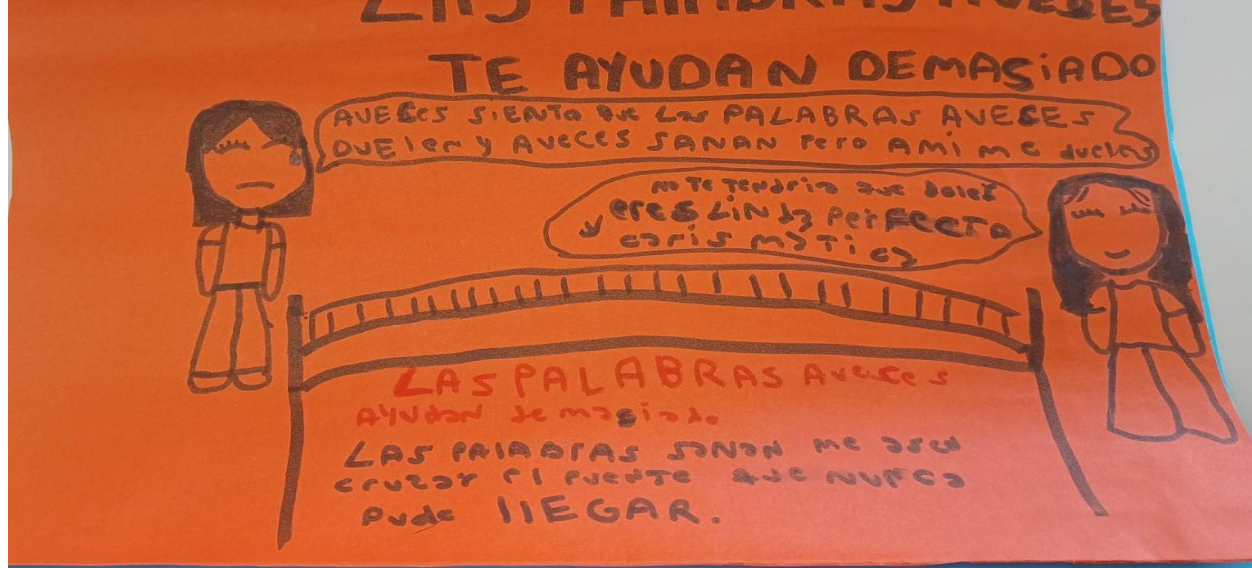 LAS PALABRAS AVESES
TE AYUDAN DEMASiADO
AVECES SiENTO QUE Las PALABRAS AVESES
DUElen y AVECES SANAN Pero AMi me duelen
no Te Tendria que doler
eres LiNda PerFECTA y
carismáTica
LAS PALABRAS Aveces
AYUdan demasiado
LAS PAlABrAS sanan me asen
cruzar el Puente que NUNca
Pude llEGAR.